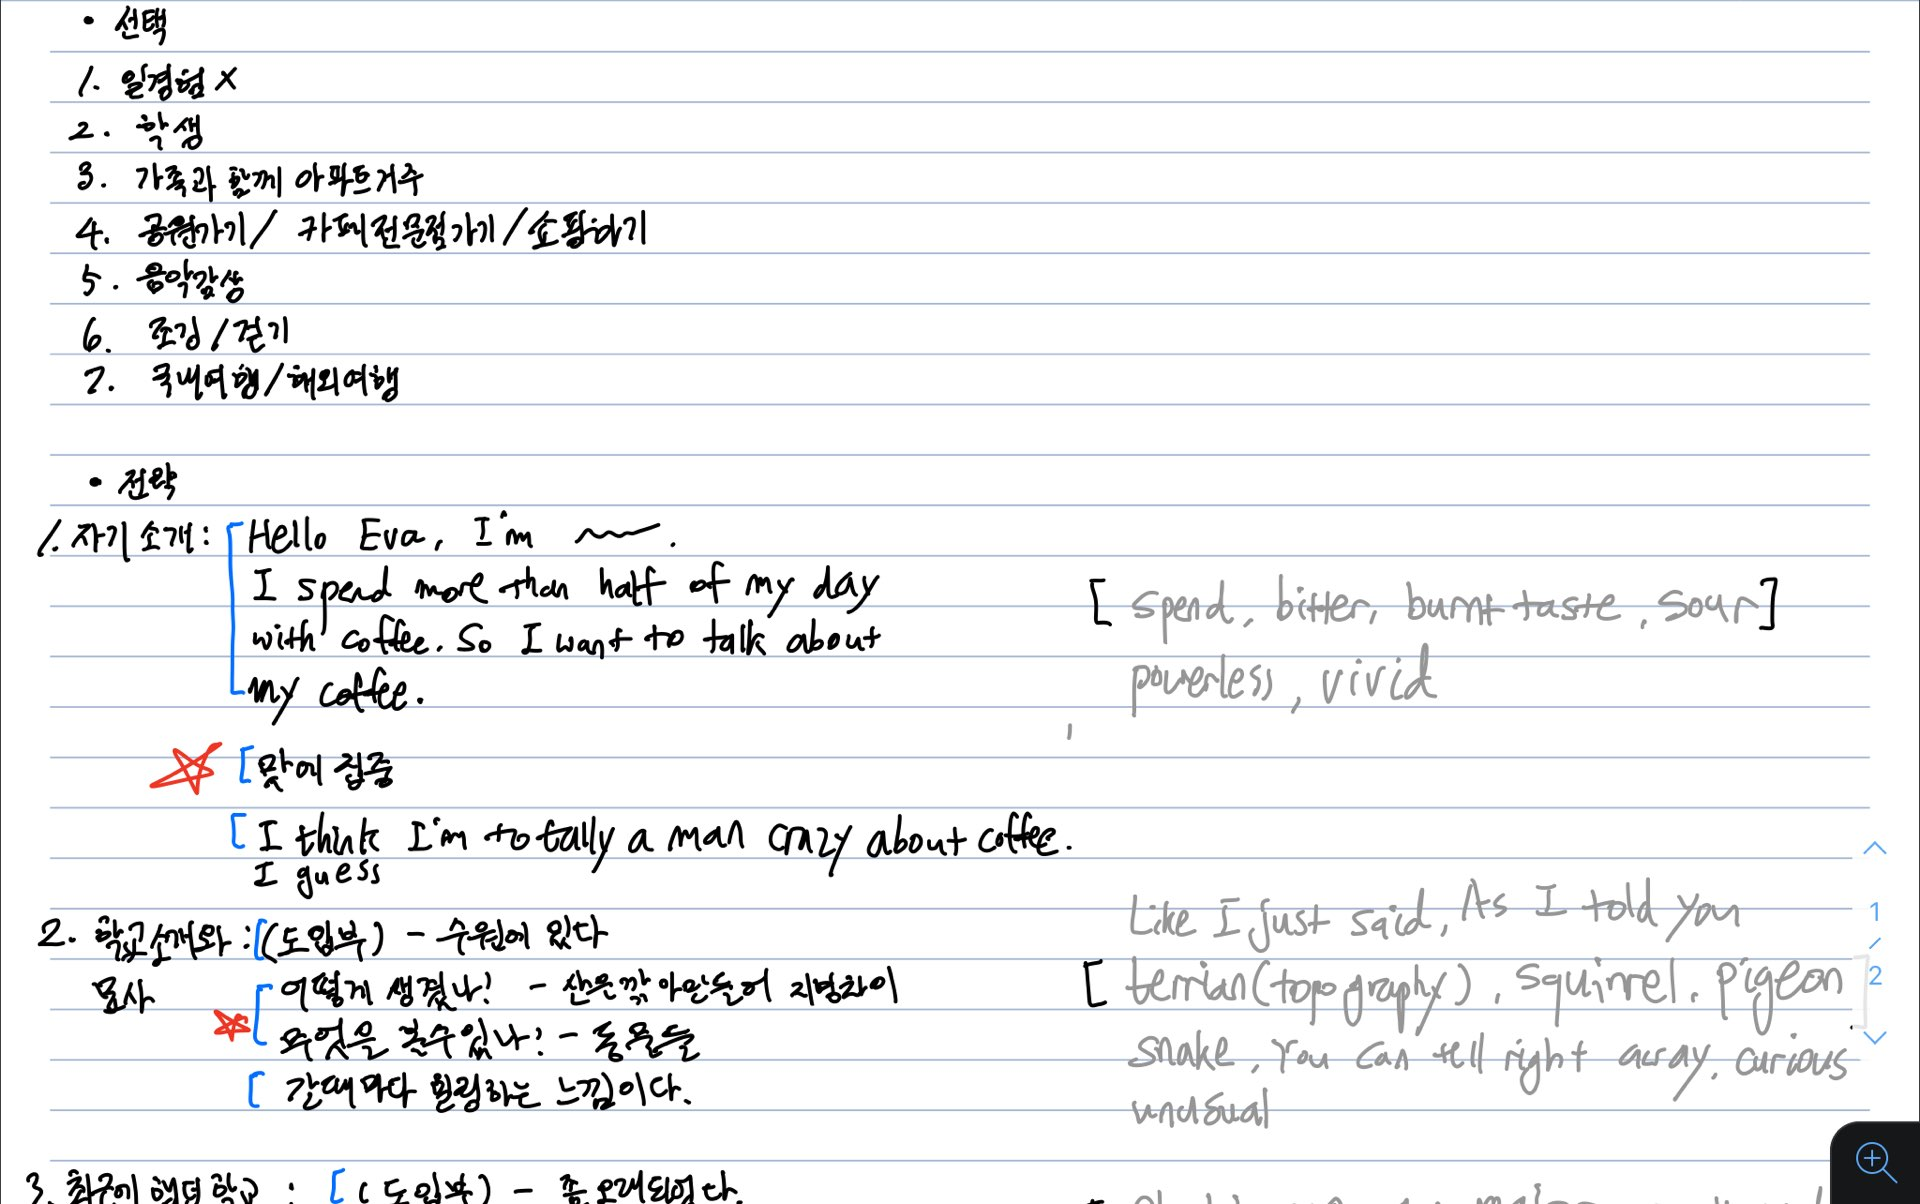 • 선택
1. 일경험 X
2. 학생
3. 가족과 함께 아파트거주
4. 공원가기 / 카페전문점가기 / 쇼핑하기
5. 음악감상
6. 조깅 / 걷기
7. 국내여행 / 해외여행
• 전략
1. 자기소개 : [Hello Eva, I'm ~~.
I spend more than half of my day
with coffee. So I want to talk about
my coffee.
[ spend, bitter, burnt taste, sour]
powerless, vivid
[맛에 집중
[ I think I'm totally a man crazy about coffee.
I guess
2. 학교소개와 : [(도입부) - 수원에 있다
묘사
[어떻게 생겼나? - 산은깎아만들어
무엇을 볼수있나? - 동물들
[ 갈때마다 힐링하는 느낌이다.
Like I just said, As I told you
[ terrian(topography), squirrel. pigeon
snake, You can tell right away, curious
unusual
3. 최근에 했던 : [(도입부) -
1
2